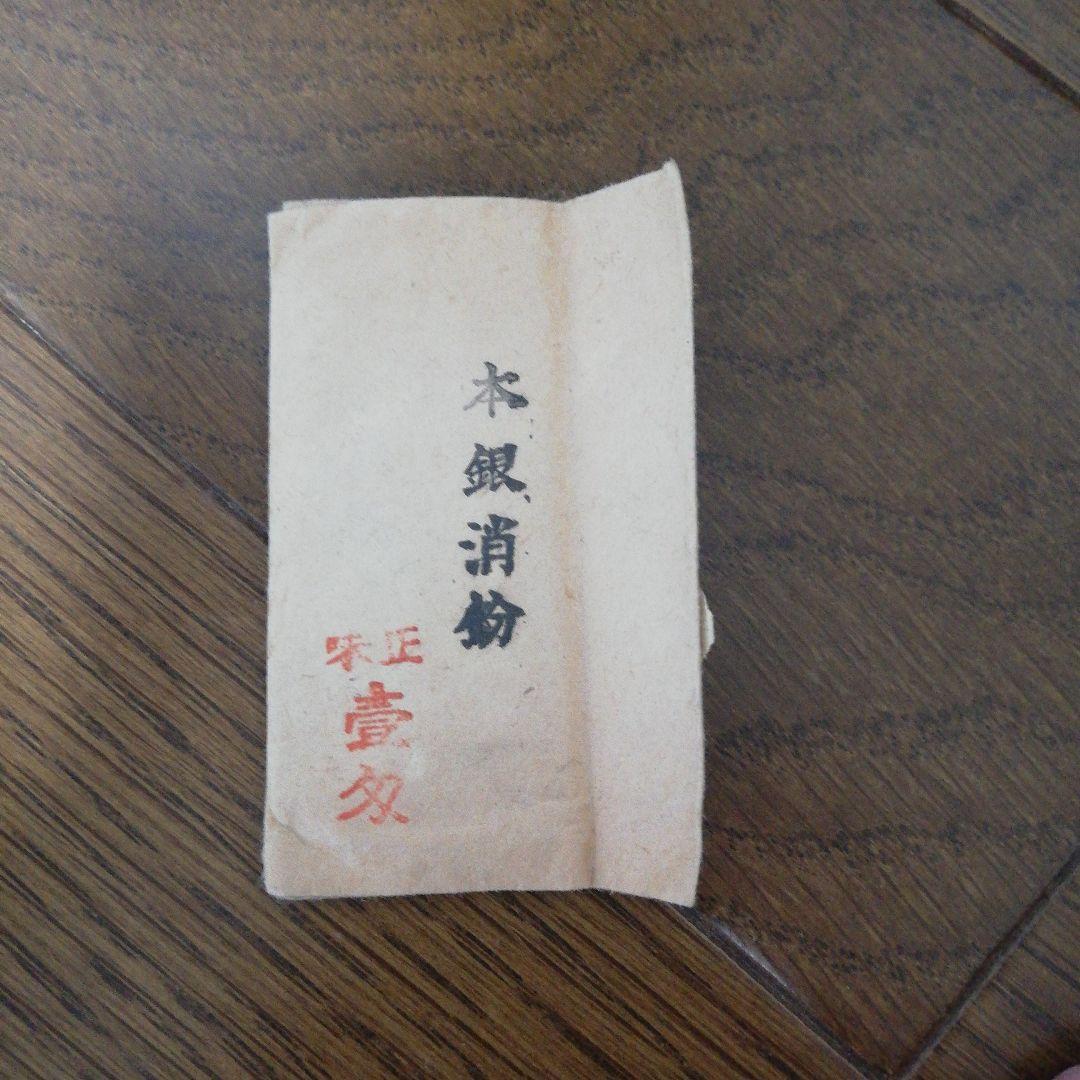 本銀消粉
正味
壹匁